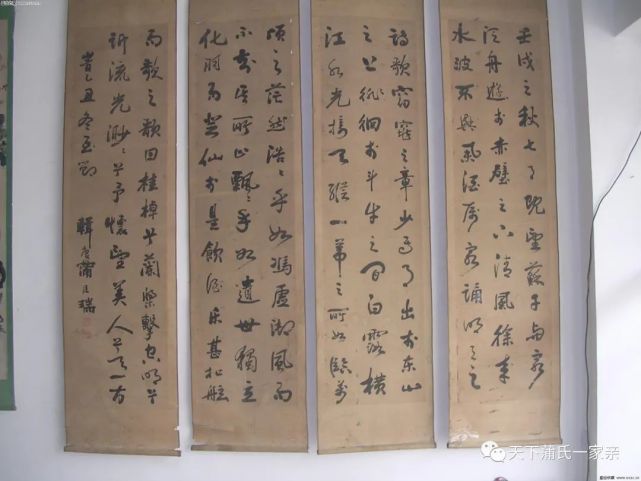 壬戌之秋七月既望蘇子與客
泛舟遊於赤壁之下清風徐來
水波不興舉酒屬客誦明月之
詩歌窈窕之章少焉月出於東山
之上徘徊於斗牛之間白露橫
江水光接天縱一葦之所如臨萬
頃之茫然浩浩乎如馮虛御風而
不知其所止飄飄乎如遺世獨立
化羽而登仙於是飲酒樂甚扣舷
而歌之歌曰桂棹兮蘭槳擊空明兮
訴流光渺渺兮予懷望美人兮天一方
丑冬 蒲瑞
天下蒲氏一家亲